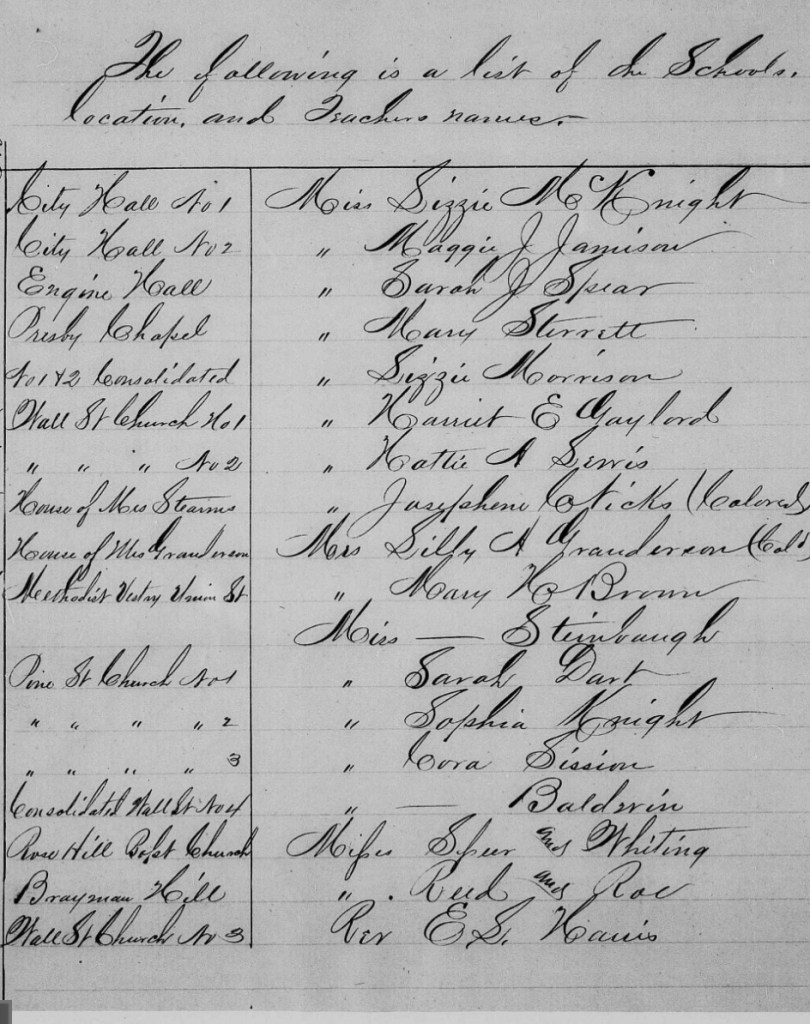 The following is a list of the Schools,
location, and Teachers names.-
City Hall No 1 Miss Lizzie McKnight
City Hall No 2 " Maggie J Jamison
Engine Hall " Sarah J Spear
Presby Chapel " Mary Sterrett
No 1 & 2 Consolidated " Lizzie Morrison
Wall St Church No 1 " Harriet E Gaylord
" " " No 2 " Hattie A Lewis
House of Mrs Stearns " Josephene C Nicks (Colored)
House of Mrs Granderson Mrs Lilly A Granderson (Cold)
Methodist Vestry Union St " Mary H Brown
Miss — Steinbaugh
Pine St Church No 1 " Sarah Dart
" " " " 2 " Sophia Knight
" " " " 3 " Cora Sission
Consolidated Wall St No 4 " — Baldwin
Rose Hill Bapst Church Misses Speer and Whiting
Brayman Hill " . Reed and Roe
Wall St Church No 3 Rev E.S. Harris